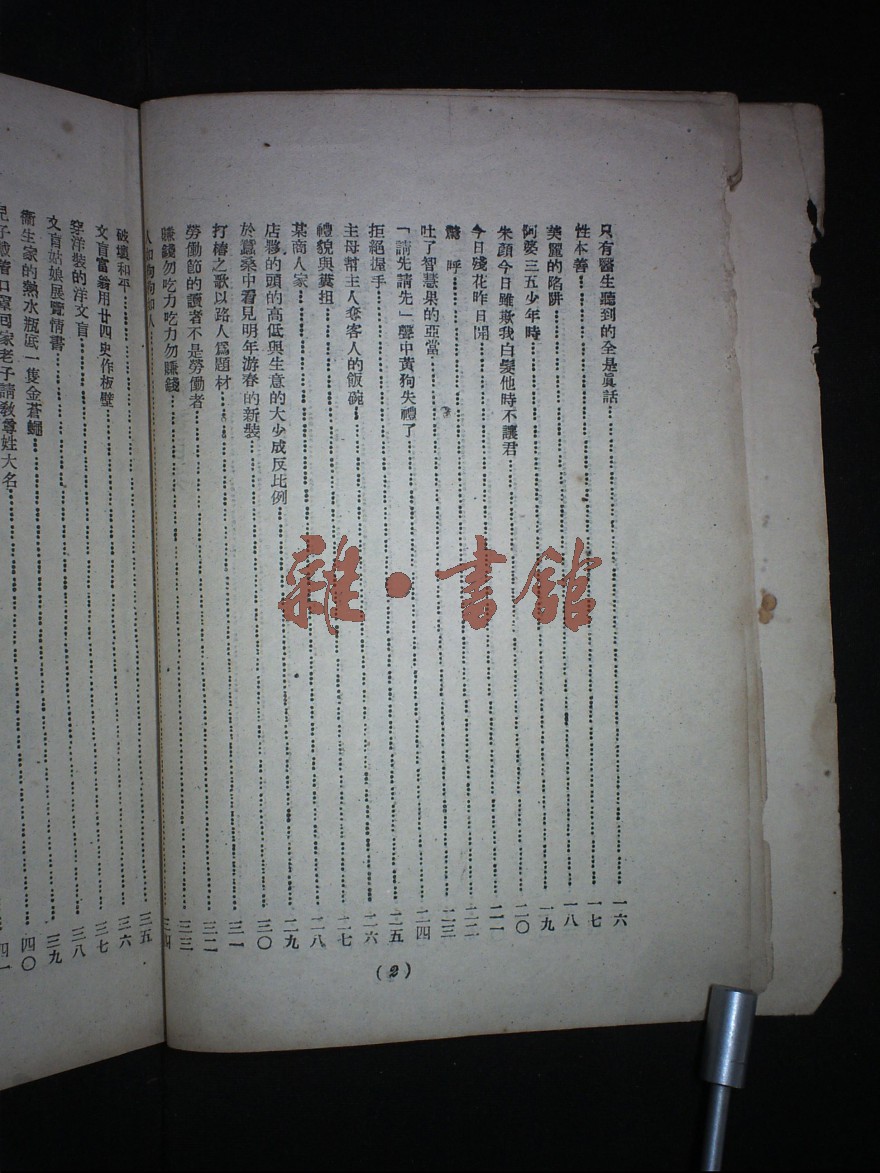 只有醫生聽到的全是眞話……一六
性本善……一七
美麗的陷阱……一八
阿婆三五少年時……一九
朱顔今日雖欺我白髮他時不讓君……二〇
今日殘花昨日開……二一
驚呼……二二
吐了智慧果的亞當……二三
「請先請先」聲中黃狗失禮了……二四
拒絕握手……二五
主母幫主人奪客人的飯碗……二六
禮貌與糞担……二七
某商人家……二八
店夥的頭的高低與生意的大少成反比例……二九
於蠶桑中看見明年游春的新裝……三〇
打樁之歌以路人爲題材……三一
勞働節的讀者不是勞働者……三二
賺錢勿吃力吃力勿賺錢……三三
人如狗狗如人……三四
破壞和平……三五
文盲富翁用廿四史作板壁……三六
穿洋裝的洋文盲……三七
文盲姑娘展覽情書……三八
衞生家的熱水瓶底一隻金蒼蠅……三九
兒子戴着口罩囘家老子請敎尊姓大名……四〇
四一
(2)
雜·書館